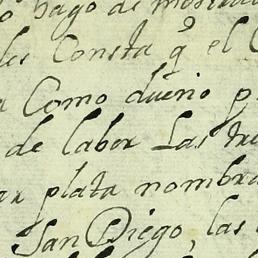 hago de
les Consta q̃ el
Como dueño
de labor Las
plata nombra
San Diego, las